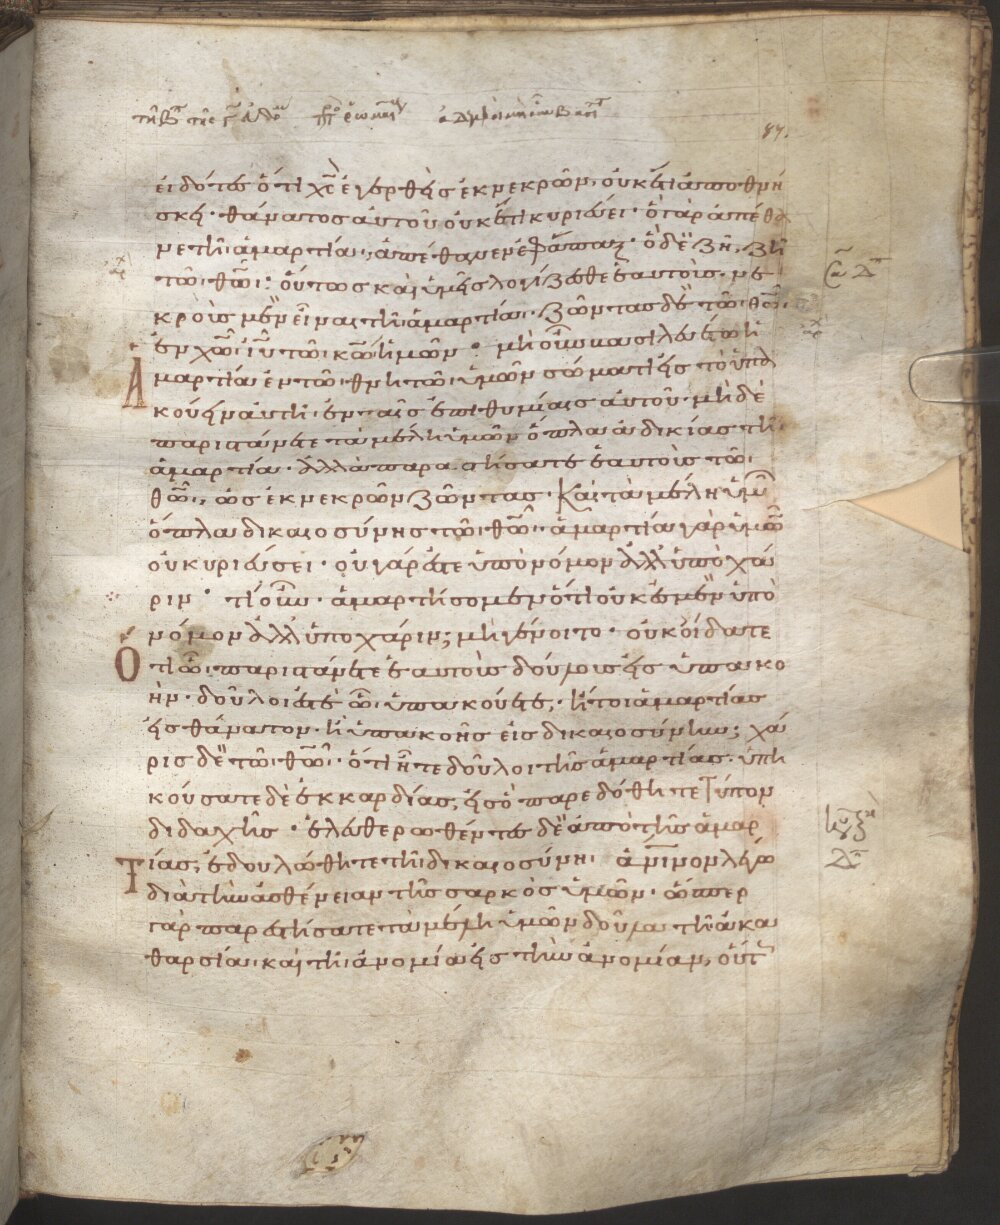 87.
εἰδότες ὅτι χ̅ς̅ ἐγερθεὶς ἐκ νεκρῶν, οὐκέτι ἀποθνή
σκει· θάνατος αὐτοῦ οὐκέτι κυριεύει· ὃ γὰρ ἀπέθα
νε τῆι ἁμαρτίαι, ἀπέθανεν ἐφάπαξ· ὃ δὲ ζῆ, ζῆ
τῶι θ̅ῶ̅ι· οὕτως καὶ ὑμεῖς λογίζεσθε ἑαυτοὺς νε
κροὺς μὲν εἶναι τῆι ἁμαρτίαι· ζῶντας δὲ τῶι θ̅ῶ̅ι·
ἐν χ̅ῶ̅ ι̅υ̅ τῶι κ̅ῶ̅ ἡμῶν· μὴ οὖν βασιλευέτω ἡ
ἁμαρτία ἐν τῶι θνητῶι ὑμῶν σώματι εἰς τὸ ὑπα
κούειν αὐτῆι ἐν ταῖς ἐπιθυμίαις αὐτοῦ· μὴ δὲ
παριστάνετε τὰ μέλη ὑμῶν ὅπλα ἀδικίας τῆι
ἁμαρτίαι· ἀλλὰ παραστήσατε ἑαυτοὺς τῶι
θ̅ῶ̅ι, ὡς ἐκ νεκρῶν ζῶντας· καὶ τὰ μέλη ὑμῶν
ὅπλα δικαιοσύνης τῶι θ̅ῶ̅ι· ἁμαρτία γὰρ ὑμῶν
οὐ κυριεύσει· οὐ γάρ ἐστε ὑπὸ νόμον ἀλλ' ὑπὸ χά
ριν· τί οὖν· ἁμαρτήσομεν ὅτι οὐκ ἐσμὲν ὑπὸ
νόμον ἀλλ' ὑπὸ χάριν; μὴ γένοιτο· οὐκ οἴδατε
ὅτι ὧι παριστάνετε ἑαυτοὺς δούλους εἰς ὑπακο
ήν· δοῦλοί ἐστε ὧι ὑπακούετε, ἤτοι ἁμαρτίας
εἰς θάνατον· ἢ ὑπακοῆς εἰς δικαιοσύνην; χά
ρις δὲ τῶι θ̅ῶ̅ι· ὅτι ἦτε δοῦλοι τῆς ἁμαρτίας· ὑπη
κούσατε δὲ ἐκ καρδίας, εἰς ὃ παρεδόθητε τύπον
διδαχῆς· ἐλευθερωθέντες δὲ ἀπὸ τῆς ἁμαρ
τίας, ἐδουλώθητε τῆι δικαιοσύνηι· ἀ̅ν̅ινον λέγω
διὰ τὴν ἀσθένειαν τῆς σαρκὸς ὑμῶν· ὥσπερ
γὰρ παρεστήσατε τὰ μέλη ὑμῶν δοῦλα τῆι ἀκα
θαρσίαι καὶ τῆι ἀνομίαι εἰς τὴν ἀνομίαν, οὕτ